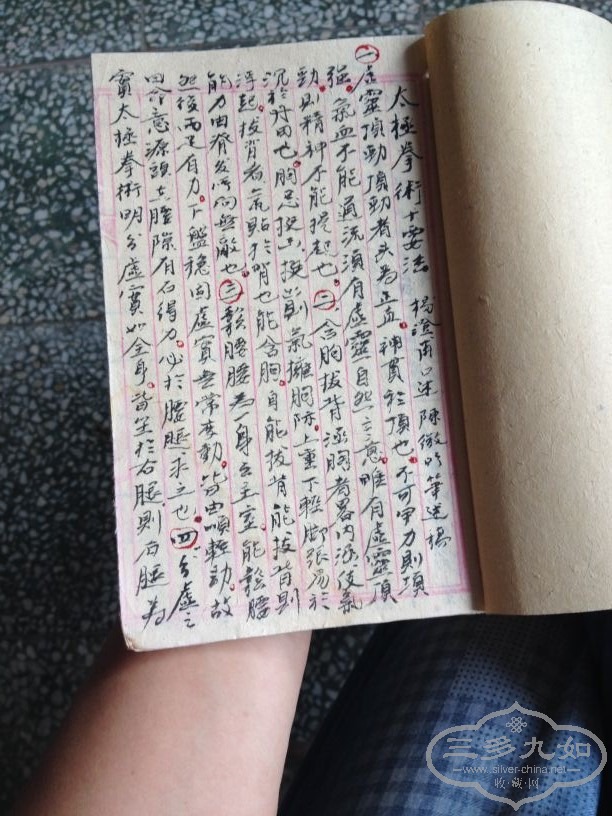 太極拳術十要法 楊澄甫口述陳微明筆述
㊀虛靈頂勁頂勁者头为正直神貫於頂也不可用力则項
强氣血不能通流須有虛靈自然之意唯有虛靈頂
勁則精神不能提起也㊁含胸拔背涵胸者畧內涵使氣
沉於丹田也胸忌挺出挺出則氣擁胸际上重下輕脚张易於
浮起拔背者氣貼於背也能含胸自能拔背能拔背則
能力由脊发所向無敵也㊂鬆腰腰为一身之主宰能鬆腰
然後两足有力下盤稳固虛實变动皆由
命意源頭在腰隙有不得力必於腰腿求之也㊃分虛
實太極拳術明分虛實如全身皆坐於右腿則右腿为
三多九如
www.silver-china.net
收·藏·网